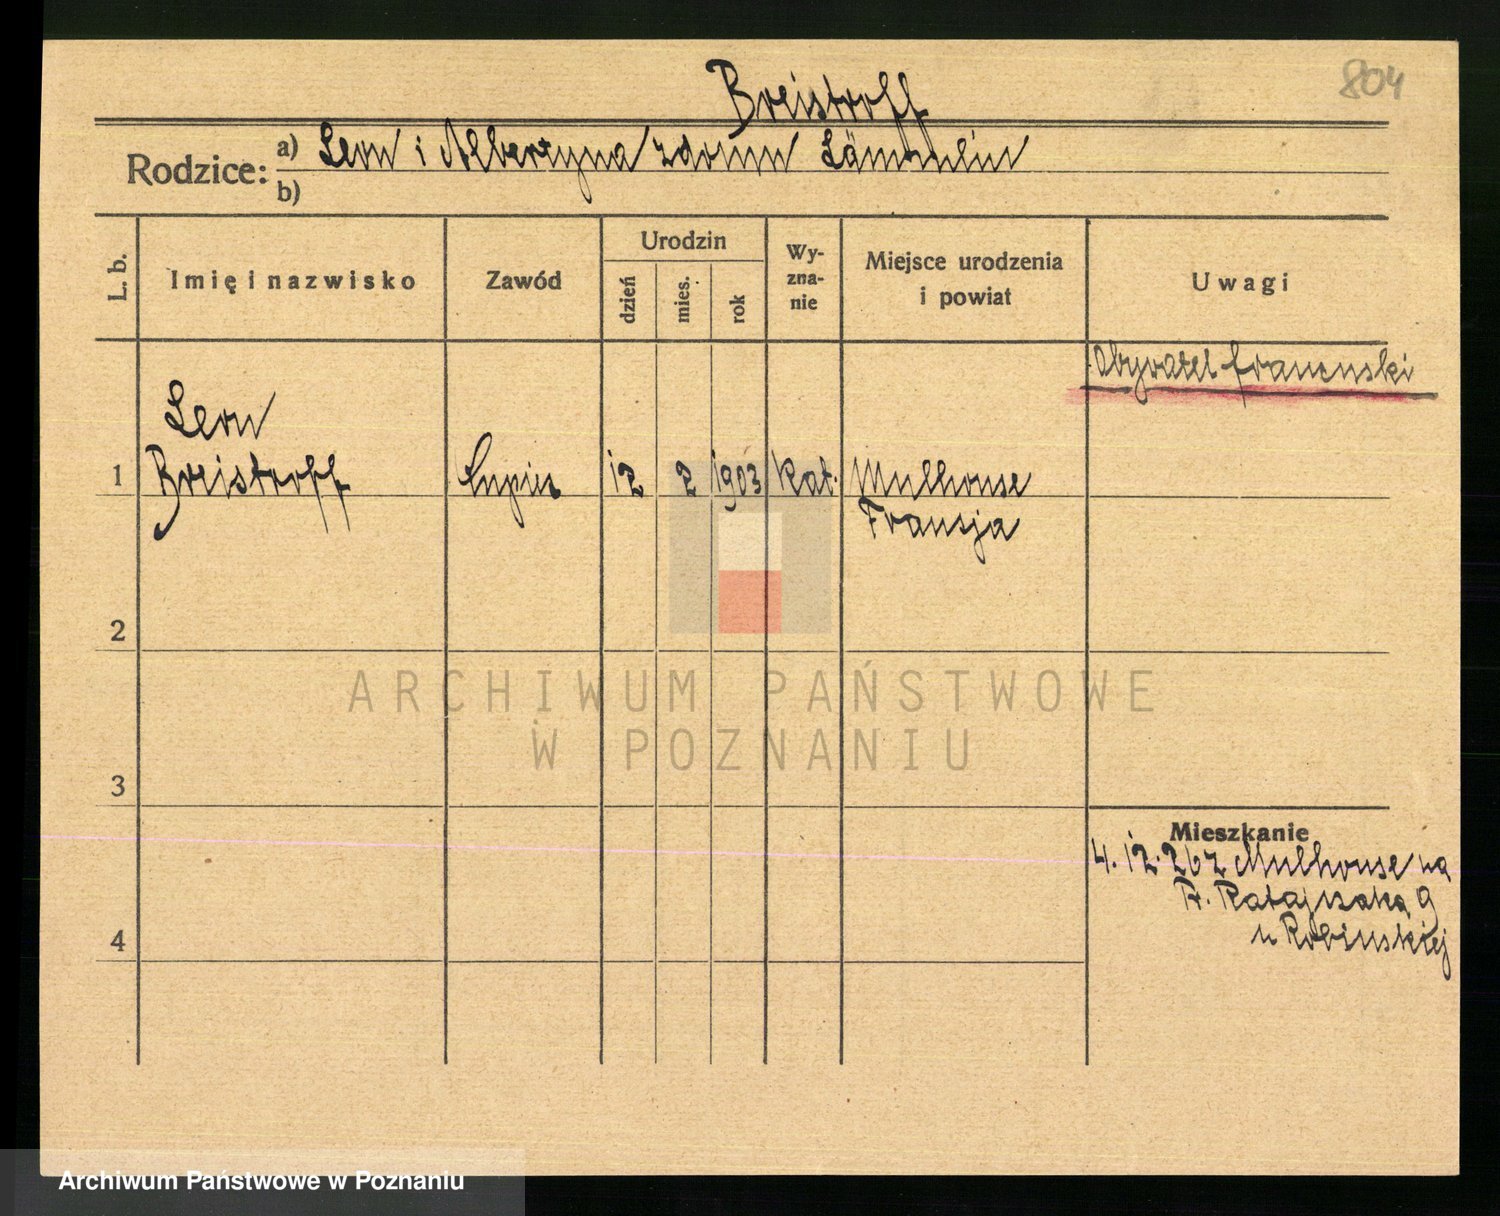 804
Breistroff
Rodzice: a) Leon i Albertyna z domu Lämmlin
b)
L. b.
Imię i nazwisko
Zawód
Urodzin
dzień
mies.
rok
Wy-
zna-
nie
Miejsce urodzenia
i powiat
Uwagi
Obywatel francuski
Leon
1 Breistroff kupiec 12 2 1903 kat. Mulhouse
Francja
2
ARCHIWUM PAŃSTWOWE
W POZNANIU
3
Mieszkanie
4. 12. 26 z Mulhouse na
Fr. Ratajczaka 9
u Robińskiej
4
Archiwum Państwowe w Poznaniu